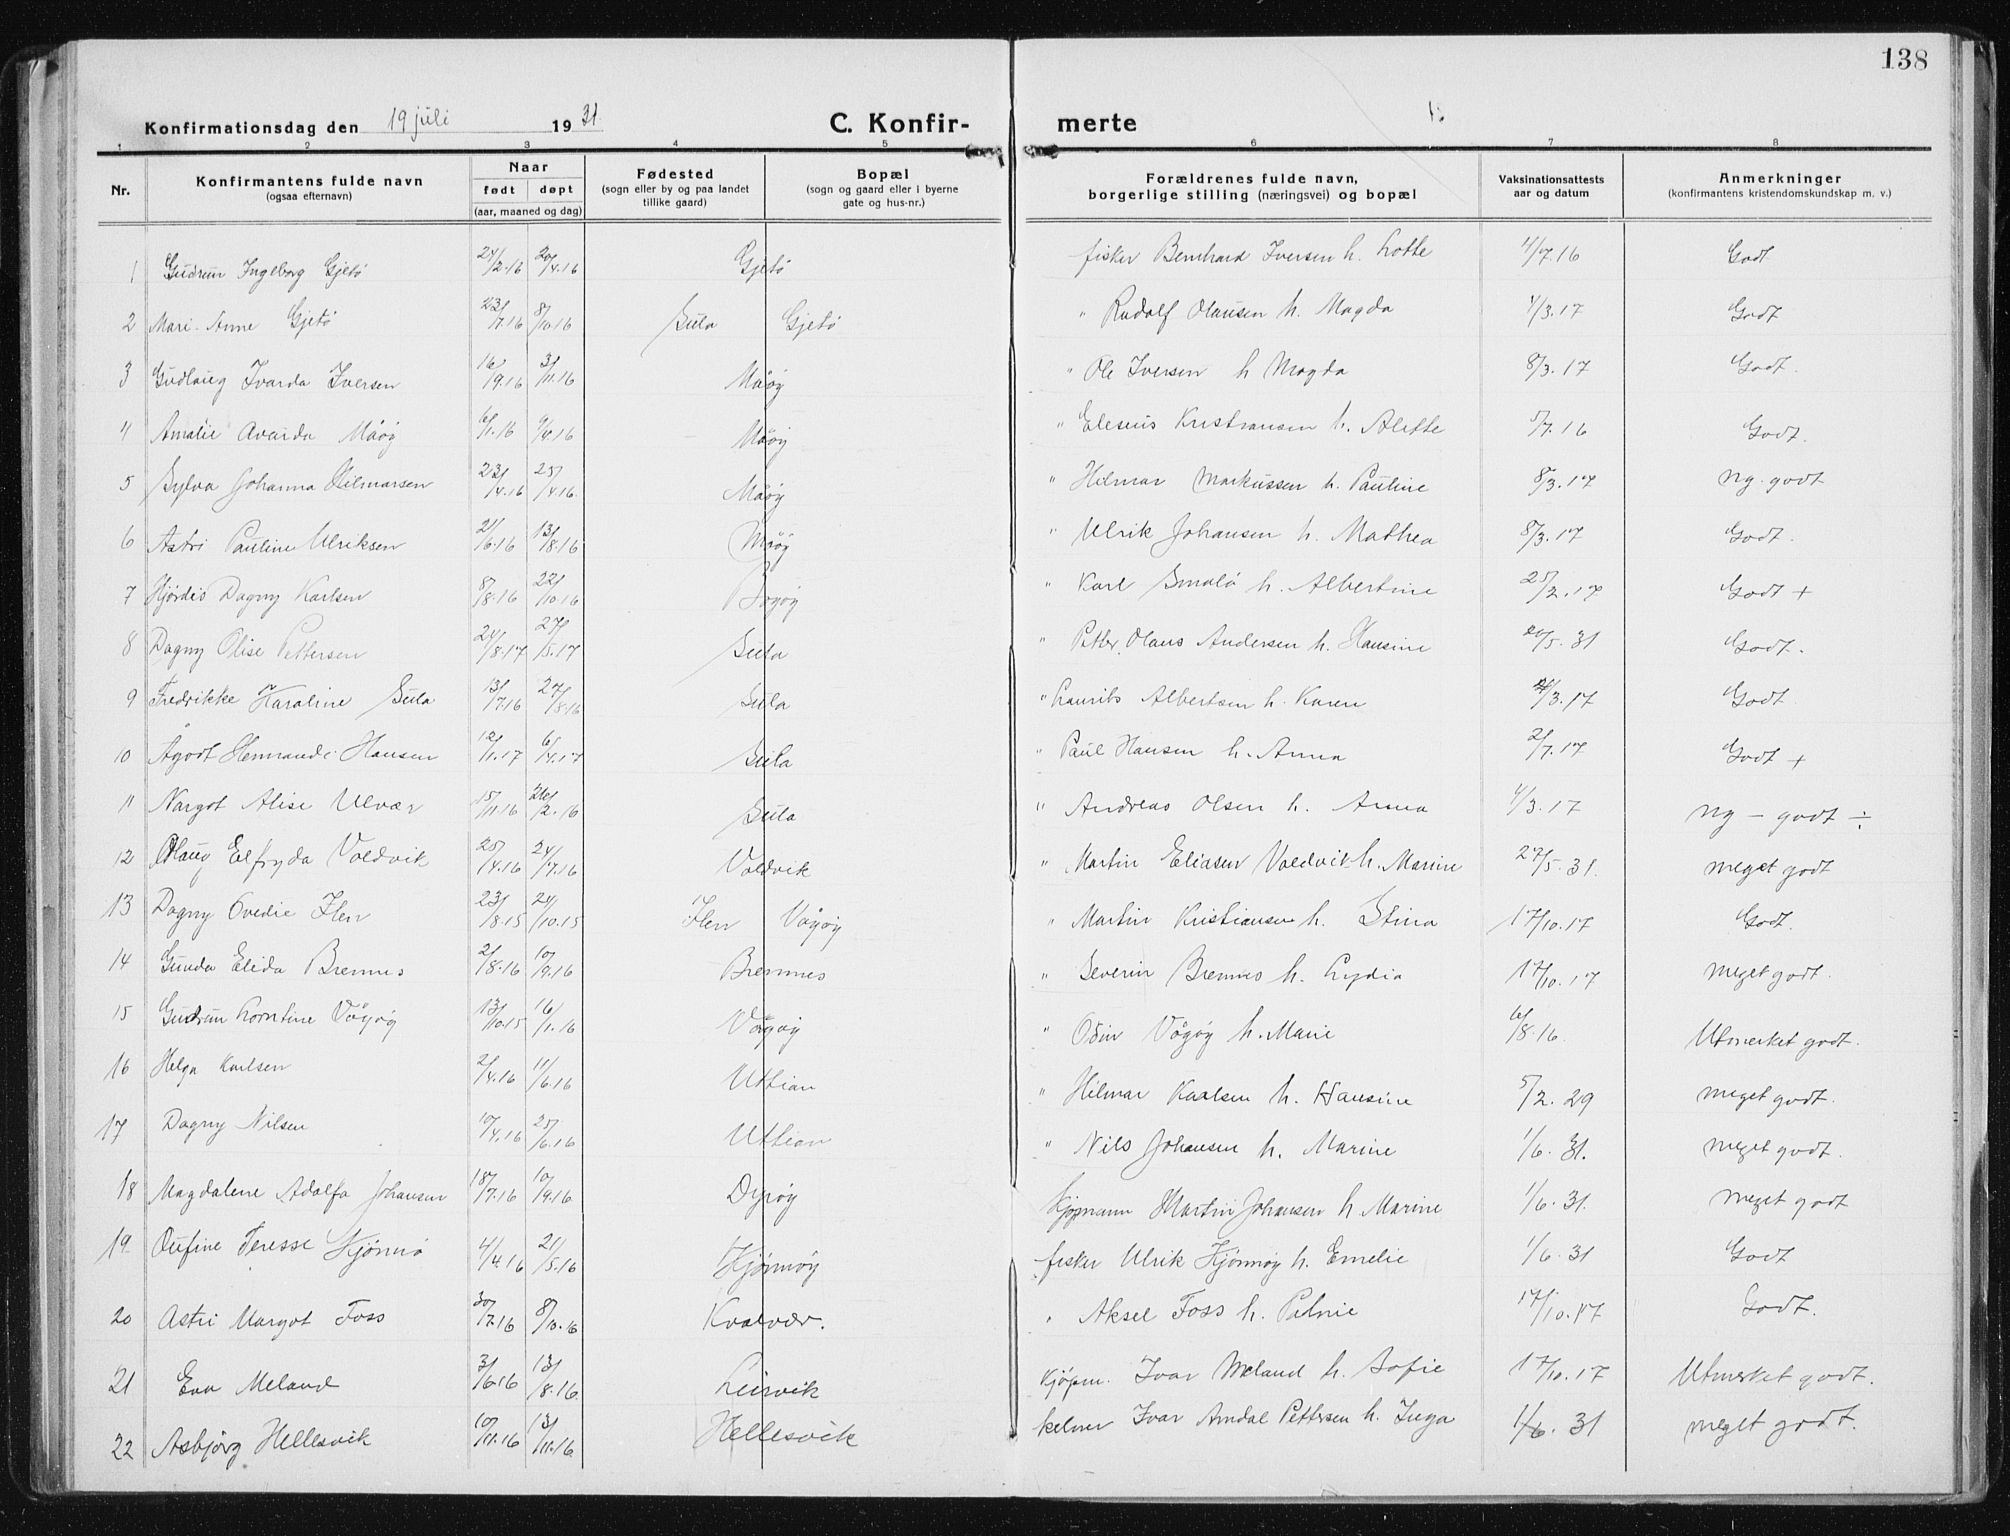 138
Konfirmationsdag den 19 juli 1931. C. Konfirmerte
1 2 3 4 5 6 7 8
Nr. Konfirmantens fulde navn (ogsaa efternavn) Naar født døpt (aar, maaned og dag) Fødested (sogn eller by og paa landet tillike gaard) Bopæl (sogn og gaard eller i byerne gate og hus-nr.) Forældrenes fulde navn, borgerlige stilling (næringsvei) og bopæl Vaksinationsattests aar og datum Anmerkninger (konfirmantens kristendomskundskap m. v.)
1 Gudrun Ingeborg Gjetø 24/2.16 20/4.16 Gjetø fisker Bernhard Iversen h. Lotte 4/7.16 Godt
2 Mari-Anne Gjetø 23/7.16 8/10.16 Sula Gjetø " Rudolf Olausen h. Magda 1/3.17 Godt
3 Gudlaug Ivarda Iversen 16/9.16 3/11.16 Måøy " Ole Iversen h Magda 8/3.17 Godt.
4 Amalie Avarda Måøy 6/1.16 9/4.16 Måøy " Elesius Kristiansen h. Alette 5/7.16 Godt.
5 Sylva Johanna Hilmarsen 23/4.16 25/4.16. Måøy " Hilmar Markussen h. Pauline 8/3.17 ng. godt
6 Astri Pauline Ulriksen 2/6.16 13/8.16 Måøy " Ulrik Johansen h. Mathea 8/3.17 Godt.
7 Hjørdis Dagny Karlsen 8/8.16 22/10.16 Bogøy " Karl Smalø h. Albertine 25/2.17 Godt +
8 Dagny Olise Pettersen 24/8.17 27/5.17 Sula " Petter Olaus Andersen h. Hansine 20/5.31 Godt.
9 Fredrikke Karoline Sula 13/7.16 27/8.16 Sula " Laurits Albertsen h. Karen /3.17 Godt
10 Agot Hermande Hansen 12/1.17 6/4.17 Sula " Paul Hansen h. Anna 2/7.17 Godt +
11 Margot Alise Ulvær 15/11.16 26/2.16 Sula " Andreas Olsen h. Anna 1/3.17 ng - godt ÷
12 Olaug Elfryda Valdvik 25/4.16 24/7.16 Valdvik " Martin Eliasen Valdvik h. Marine 27/5.31. meget godt
13 Dagny Ovedie Flen 23/8.15 24/10.15 Flen Vågøy " Martin Kristiansen h. Stina 17/10.17 Godt.
14 Gunda Elida Bremnes 2/8.16 10/9.16 Bremnes " Severin Bremnes h. Lydia 17/10.17 meget godt.
15 Gudrun Lorntine Vågøy 13/10.15 16/1.16 Vågøy " Odin Vågøy h. Marie 6/8.16 Utmerket godt.
16 Helga Karlsen 2/4.16 11/6.16 Uttian " Hilmar Karlsen h. Hansine 5/2.29 meget godt.
17 Dagny Nilsen 10/4.16 25/6.16 Uttian " Nils Johansen h. Marine 1/6.31. meget godt.
18 Magdalene Adolfa Johansen 18/7.16 10/9.16 Dyrøy Kjøpmann Martin Johansen h Marine 1/6.31. meget godt
19 Oufine Teresse Hjønnø 4/4.16 21/5.16 Hjønnøy fisker Ulrik Hjønnøy h. Emelie 1/6.31 Godt
20 Astri Margot Foss 30/7.16 8/10.16 Kvalvær. " Aksel Foss h. Palnie 17/10.17 Godt.
21 Eva Meland 3/6.16 13/8.16. Leirvik Kjøpm. Ivar Meland h. Sofie 17/10.17 Utmerket godt.
22 Asbjørg Hellesvik 10/11.16 13/11.16 Hellesvik kelner Ivar Amdal Pettersen h. Inga 1/6.31 meget godt.